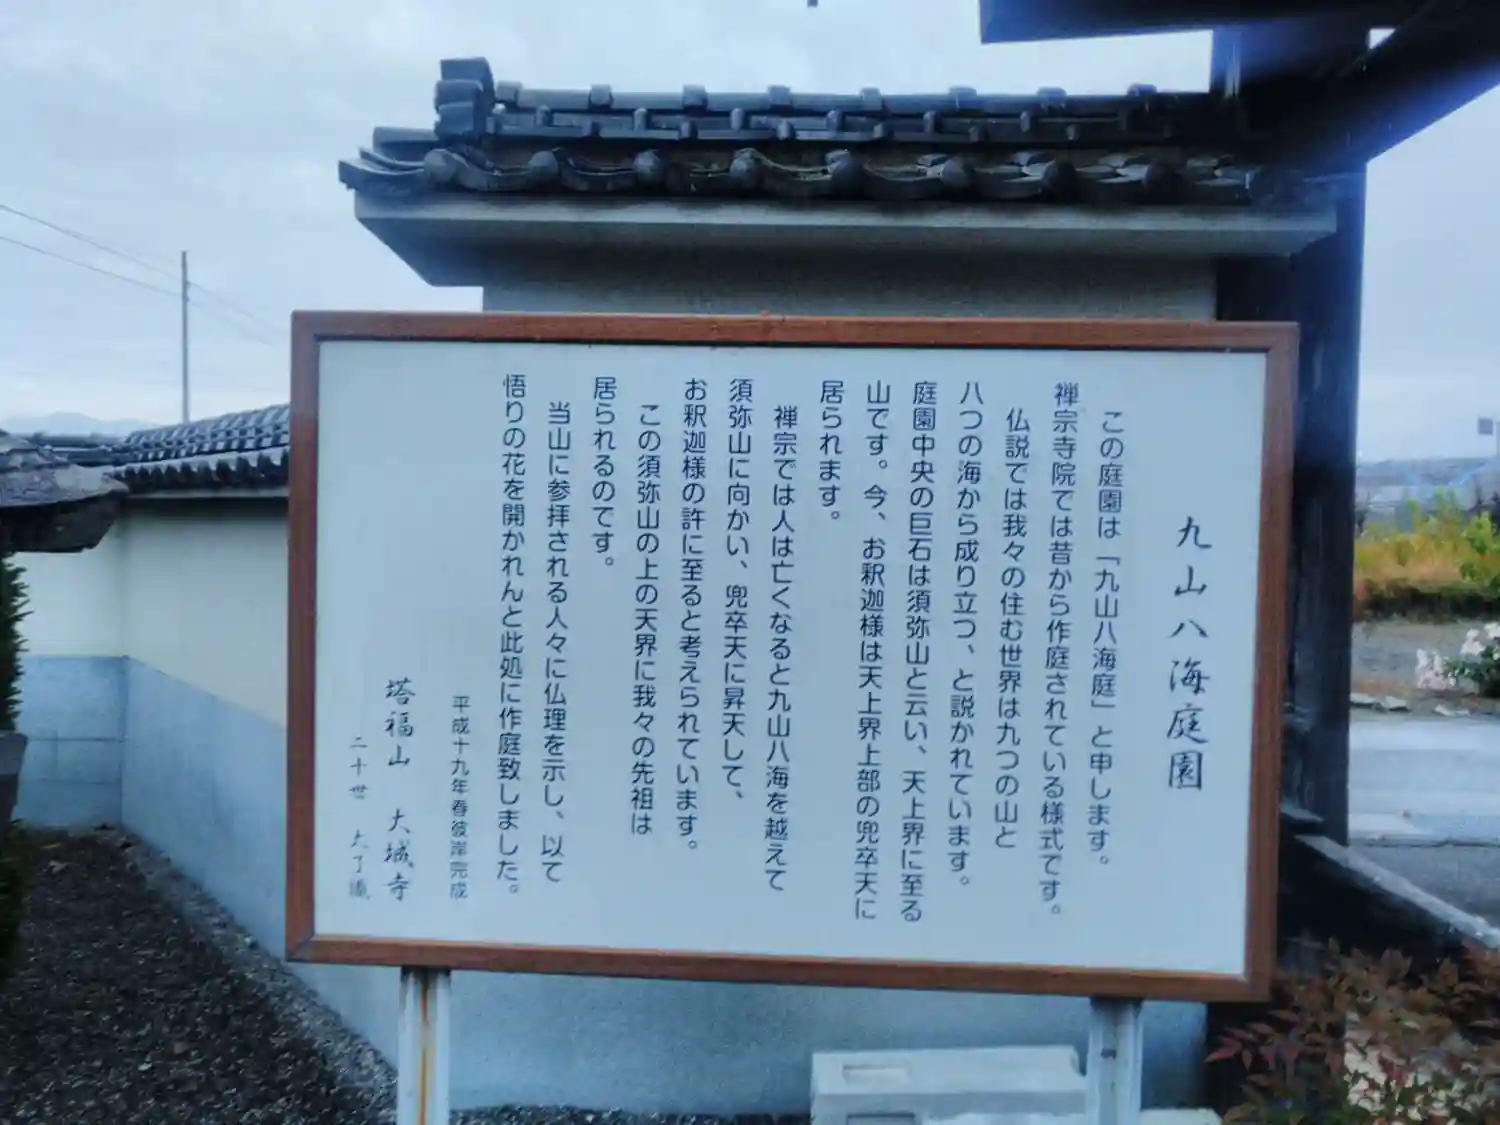 九山八海庭園
この庭園は「九山八海庭」と申します。
禅宗寺院では昔から作庭されている様式です。
仏説では我々の住む世界は九つの山と
八つの海から成り立つ、と説かれています。
庭園中央の巨石は須弥山と云い、天上界に至る
山です。今、お釈迦様は天上界上部の兜卒天に
居られます。
禅宗では人は亡くなると九山八海を越えて
須弥山に向かい、兜卒天に昇天して、
お釈迦様の許に至ると考えられています。
この須弥山の上の天界に我々の先祖は
居られるのです。
当山に参拝される人々に仏理を示し、以て
悟りの花を開かれんと此処に作庭致しました。
平成十九年春彼岸完成
塔福山 大城寺
二十世 大了